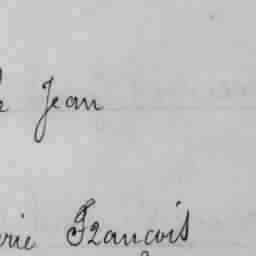 Jean
rie François